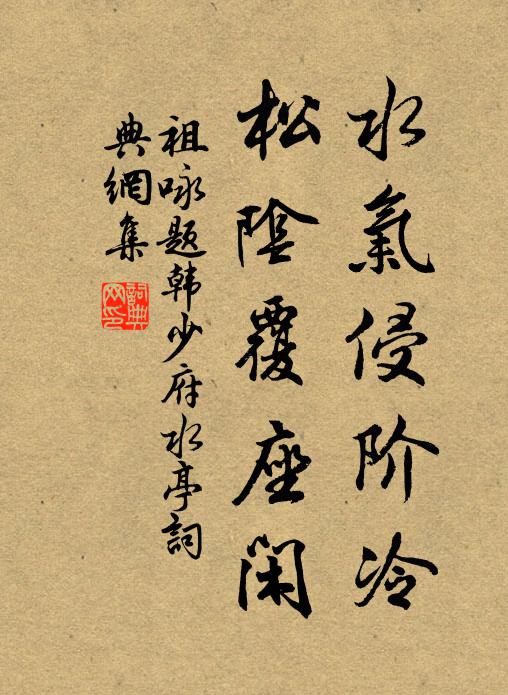 水氣侵阶冷
松陰覆座閑
祖咏题韩少府水亭詞
典網集
詞典网印